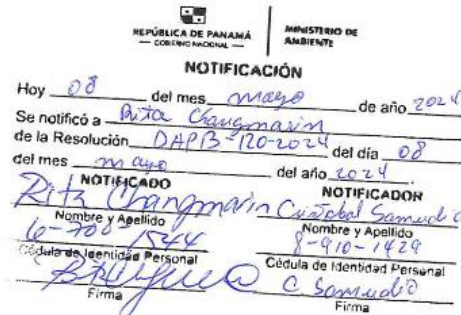 REPÚBLICA DE PANAMÁ
— GOBIERNO NACIONAL —
MINISTERIO DE
AMBIENTE
NOTIFICACIÓN
Hoy 08 del mes mayo de año 2024
Se notificó a Rita Changmarin
de la Resolución DAPB-120-2024 del día 08
del mes mayo del año 2024.
NOTIFICADO
Rita Changmarin
Nombre y Apellido
6-708-1544
Cédula de Identidad Personal
Firma
NOTIFICADOR
Cristobal Samudio
Nombre y Apellido
8-910-1429
Cédula de Identidad Personal
C Samudio
Firma